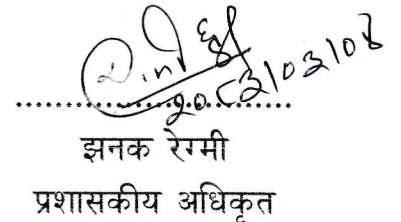 २०८२।०३।०४
झनक रेग्मी
प्रशासकीय अधिकृत